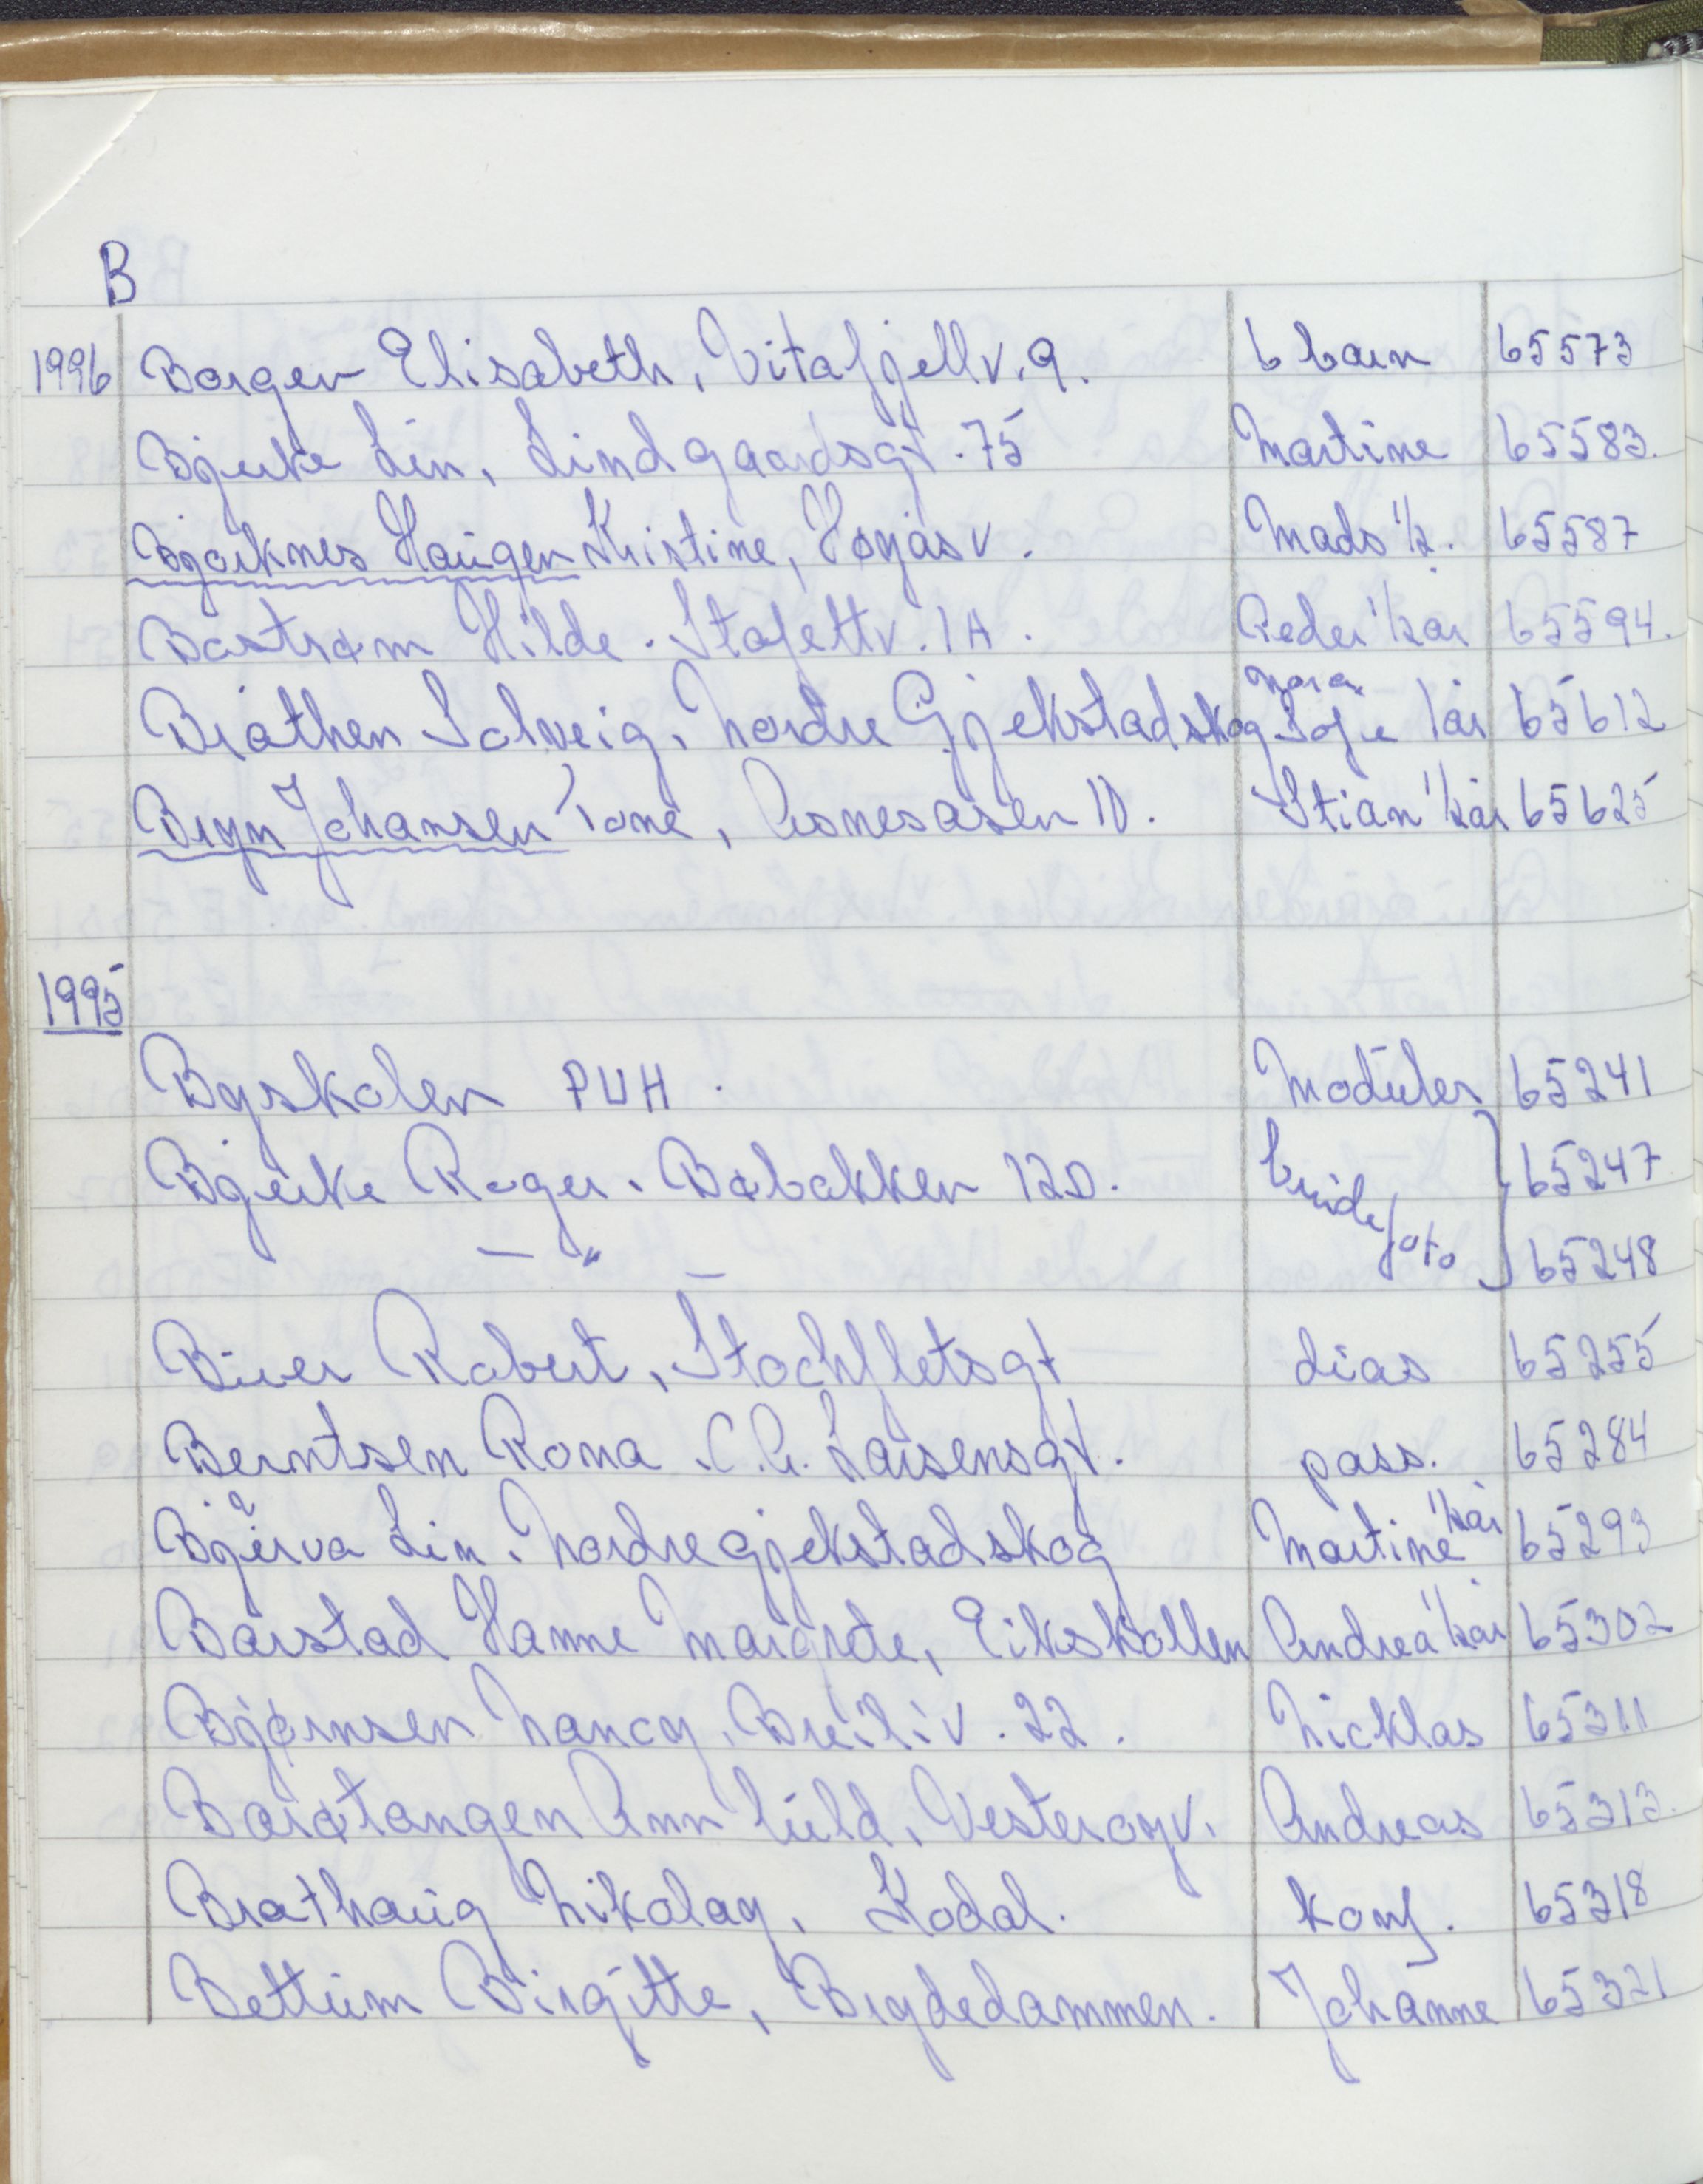 B
1996 Borgen Elisabeth, Vitafjellv. 9. 6 barn 65573
Bjerke Lin, Lindgaardsgt. 75 Martine 65583.
Bjørknes Haugen Kristine, Vonjas v. Mads 1/2. 65587
Bostrøm Hilde. Stafettv. 1A. Peder 1/2 år 65594.
Bråthen Solveig, Nordre Gjekstadskog Nora Sofie 1 år 65612
Bryn Johansen Tone, Asnesåsen 10. Stian 1/2 år 65625
1995
Byskolen PUH. Moduler 65241
Bjerke Roger. Bøbakken 12D. brudefoto 65247
— " — 65248
Biver Robert, Stockfletsgt dias 65255
Berntsen Rona. C.A. Larsensgt. pass. 65284
Bjerva Lin. Nordre gjekstadskog Martine 1/2 år 65293
Barstad Hanne Margrete, Eikskollen Andrea 1/2 år 65302
Bjørnsen Nancy, Breiliv. 22. Nicklas 65311
Barøtangen Ann Guld, Vesterøyv. Andreas 65313.
Brathaug Nikolay, Kodal. konf. 65318
Bettum Birgitte, Brydedammen. Johanne 65321